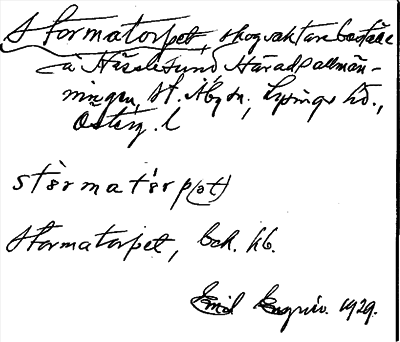 Stormatorpet, skogvaktareboställe
å Hässlesund, Häradsallmän-
ningen, St. Åby sn, Lysings hd.,
Österg. l
stòrmatʹɵrp(ət)
Stormatorpet, bok. hb.
Emil 1929.